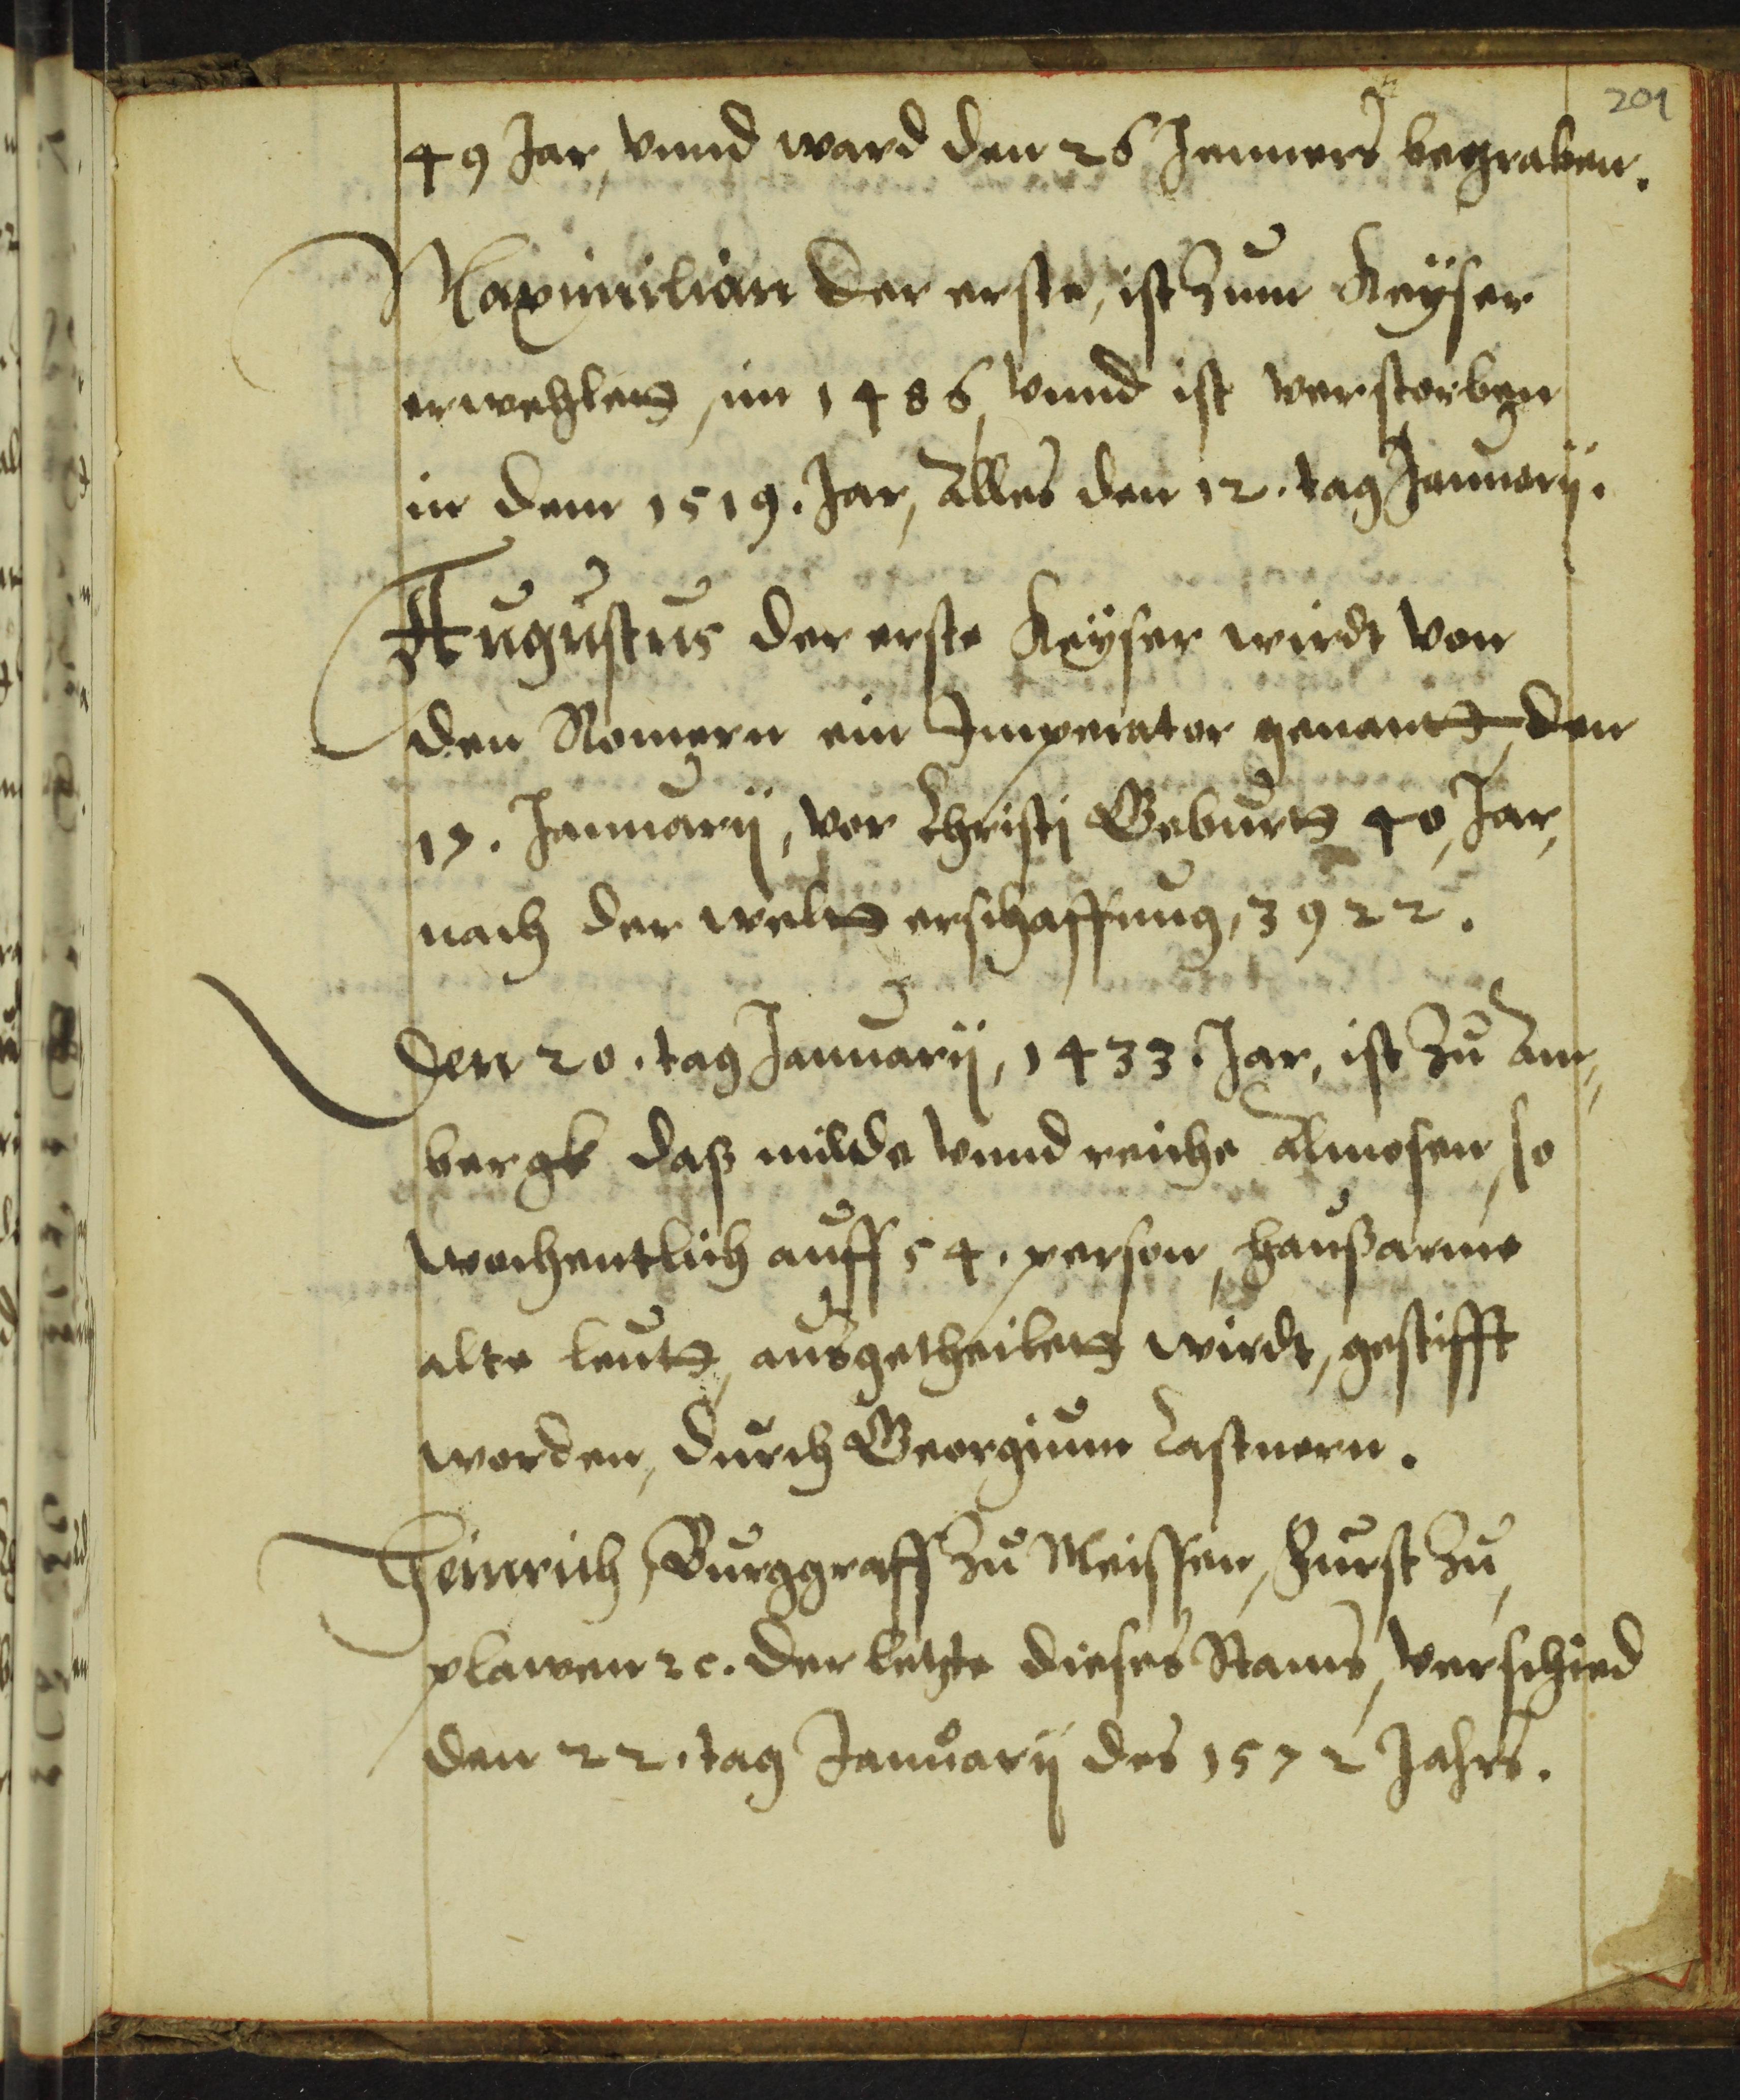 201
49 Jar, vnnd ward den 26 Jenners begraben.
Maximilian der erste, ist zum Keÿser
erwehlet, im 1486, vnnd ist verstorben
in dem 1519. Jar, Alles den 12. tag Januarij.
Augustus der erste Keÿser wirdt von
den Romern ein Imperator genantt, den
17. Januarij, vor Christj Geburtt 40, Jar,
nach der weltt erschaffung, 3922.
Den 20. tag Januarij, 1433. Jar, ist zu Am-
bergk daß milde vnnd reiche Almosen, so
wochentlich auff 54. person, haußarme
alte leutt, ausgetheilett wirdt, gestifft
worden, durch Georgium Castnern.
Heinrich, Burggraff zu Meissen, Furst zu,
plawen ꝛc. der letzte dieses Stams, verschied
den 22. tag Januarij des 1572 Jahrs.